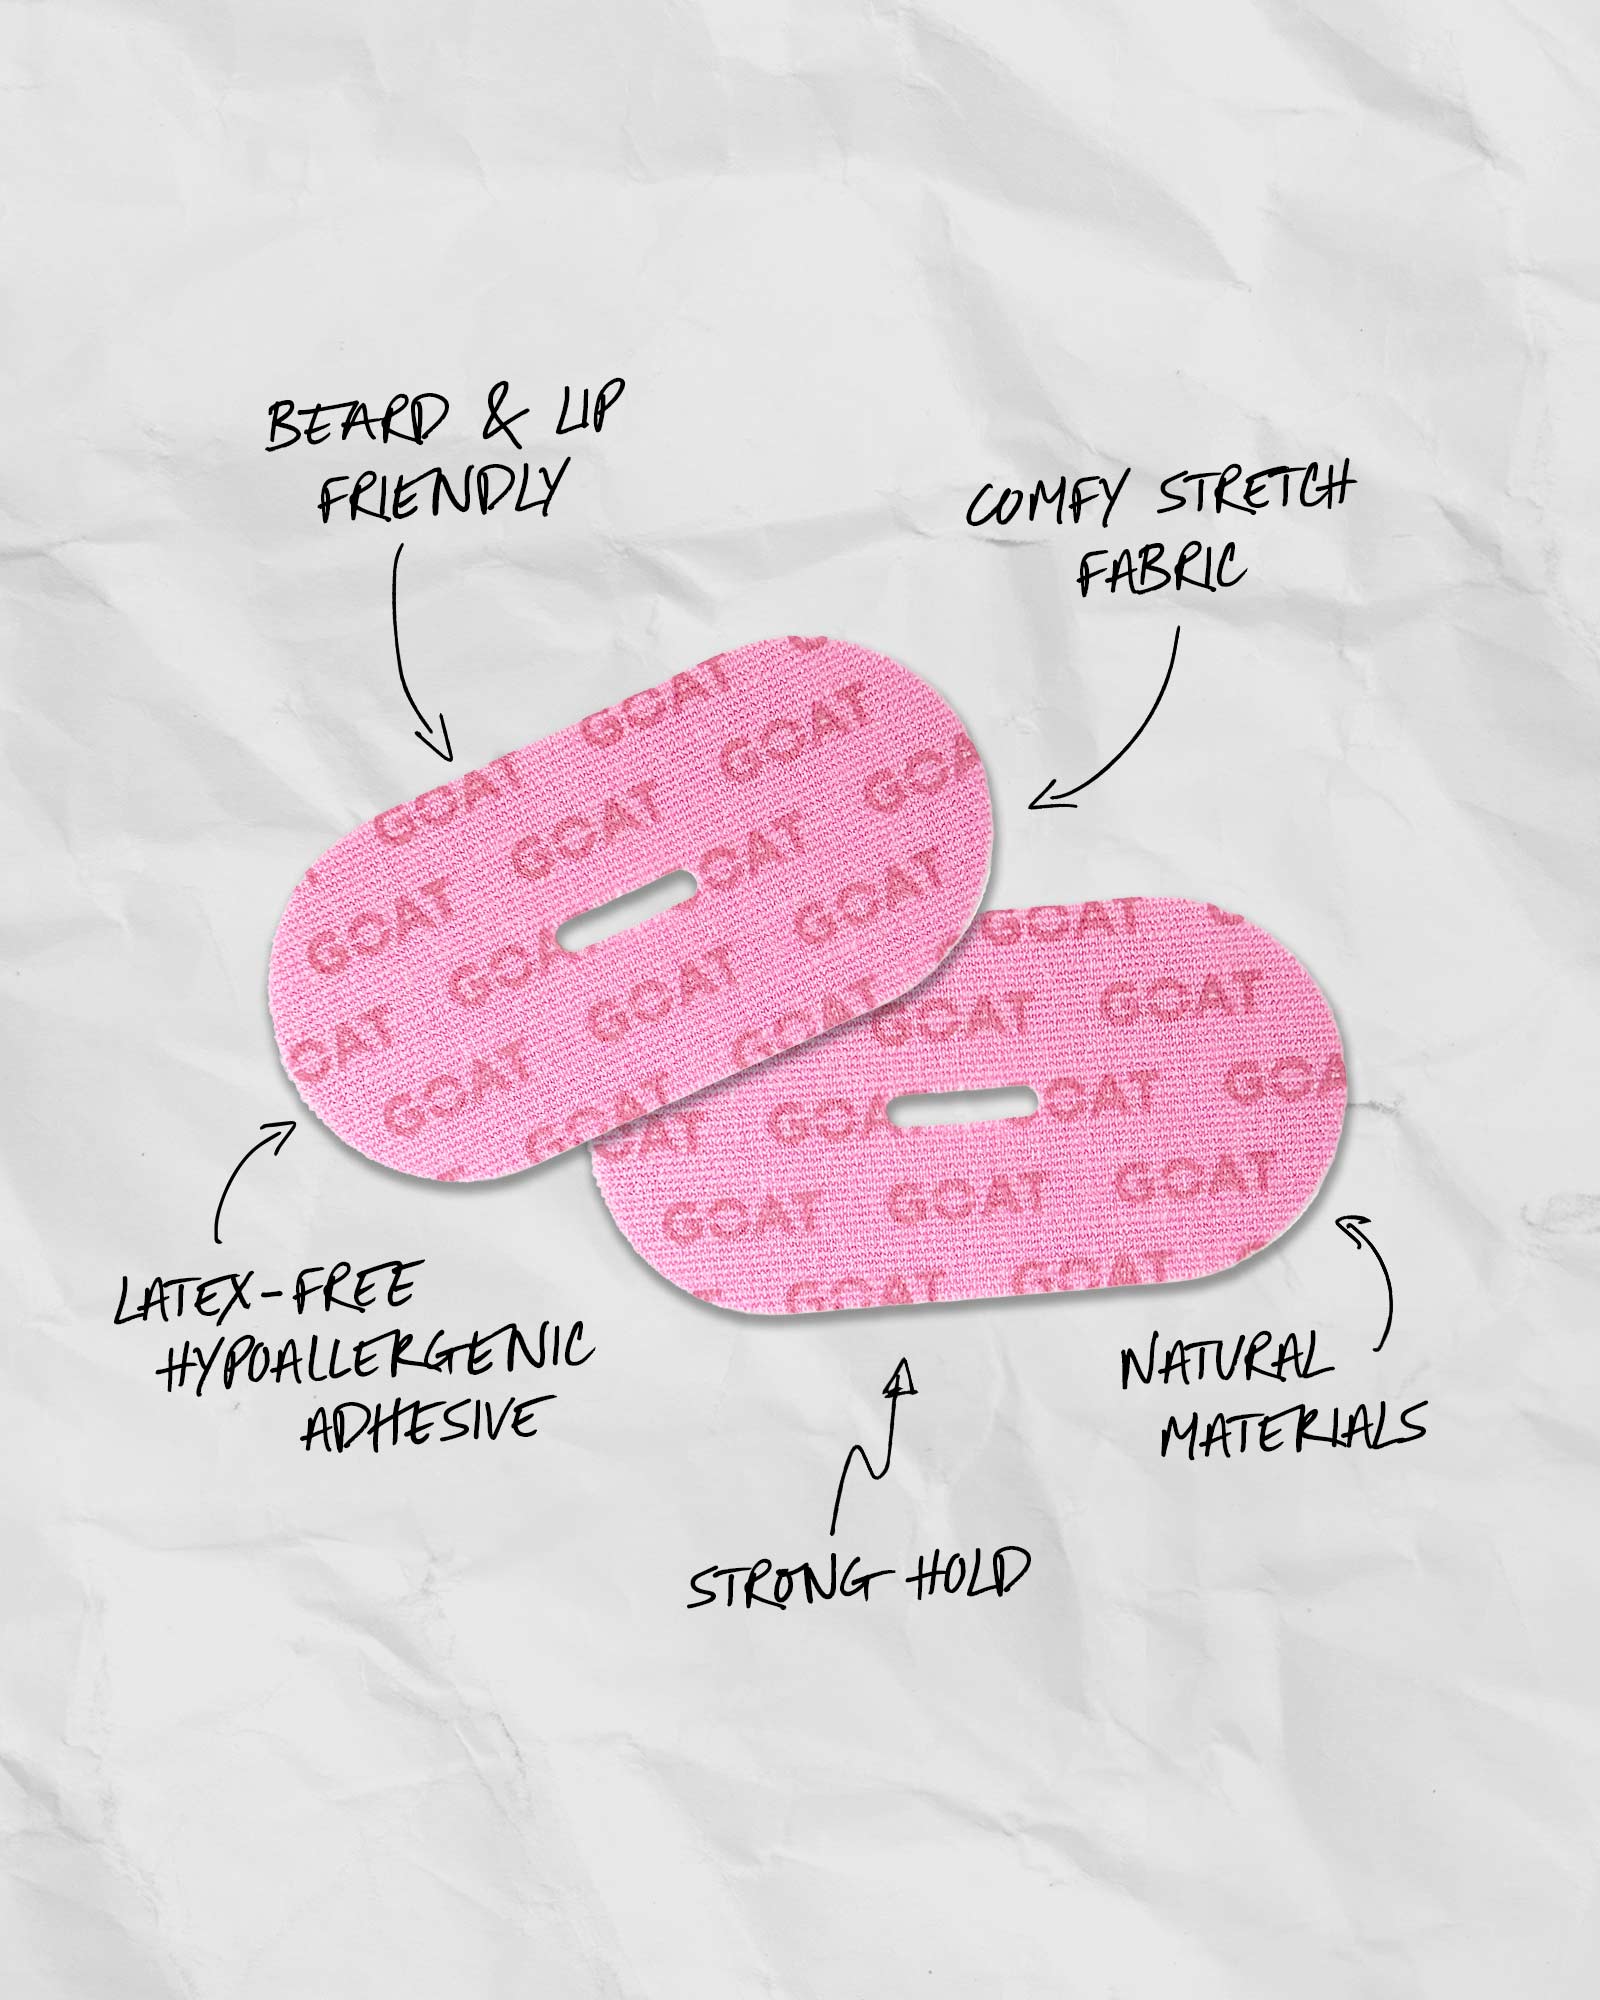 BEARD & LIP
FRIENDLY
COMFY STRETCH
FABRIC
GOAT
GOAT
GOAT
GOA
GOAT
GOAT
OAT
GOAT
GOAT
GOA
GOAT
GOAT
OAT
GOAT
GOAT
GOAT
GOAT
GOAT
GOAT
GOA
OAT
GOA
GOAT
GOAT
GOAT
GOAT
GOAT
GOAT
LATEX-FREE
HYPOALLERGENIC
ADHESIVE
NATURAL
MATERIALS
STRONG HOLD